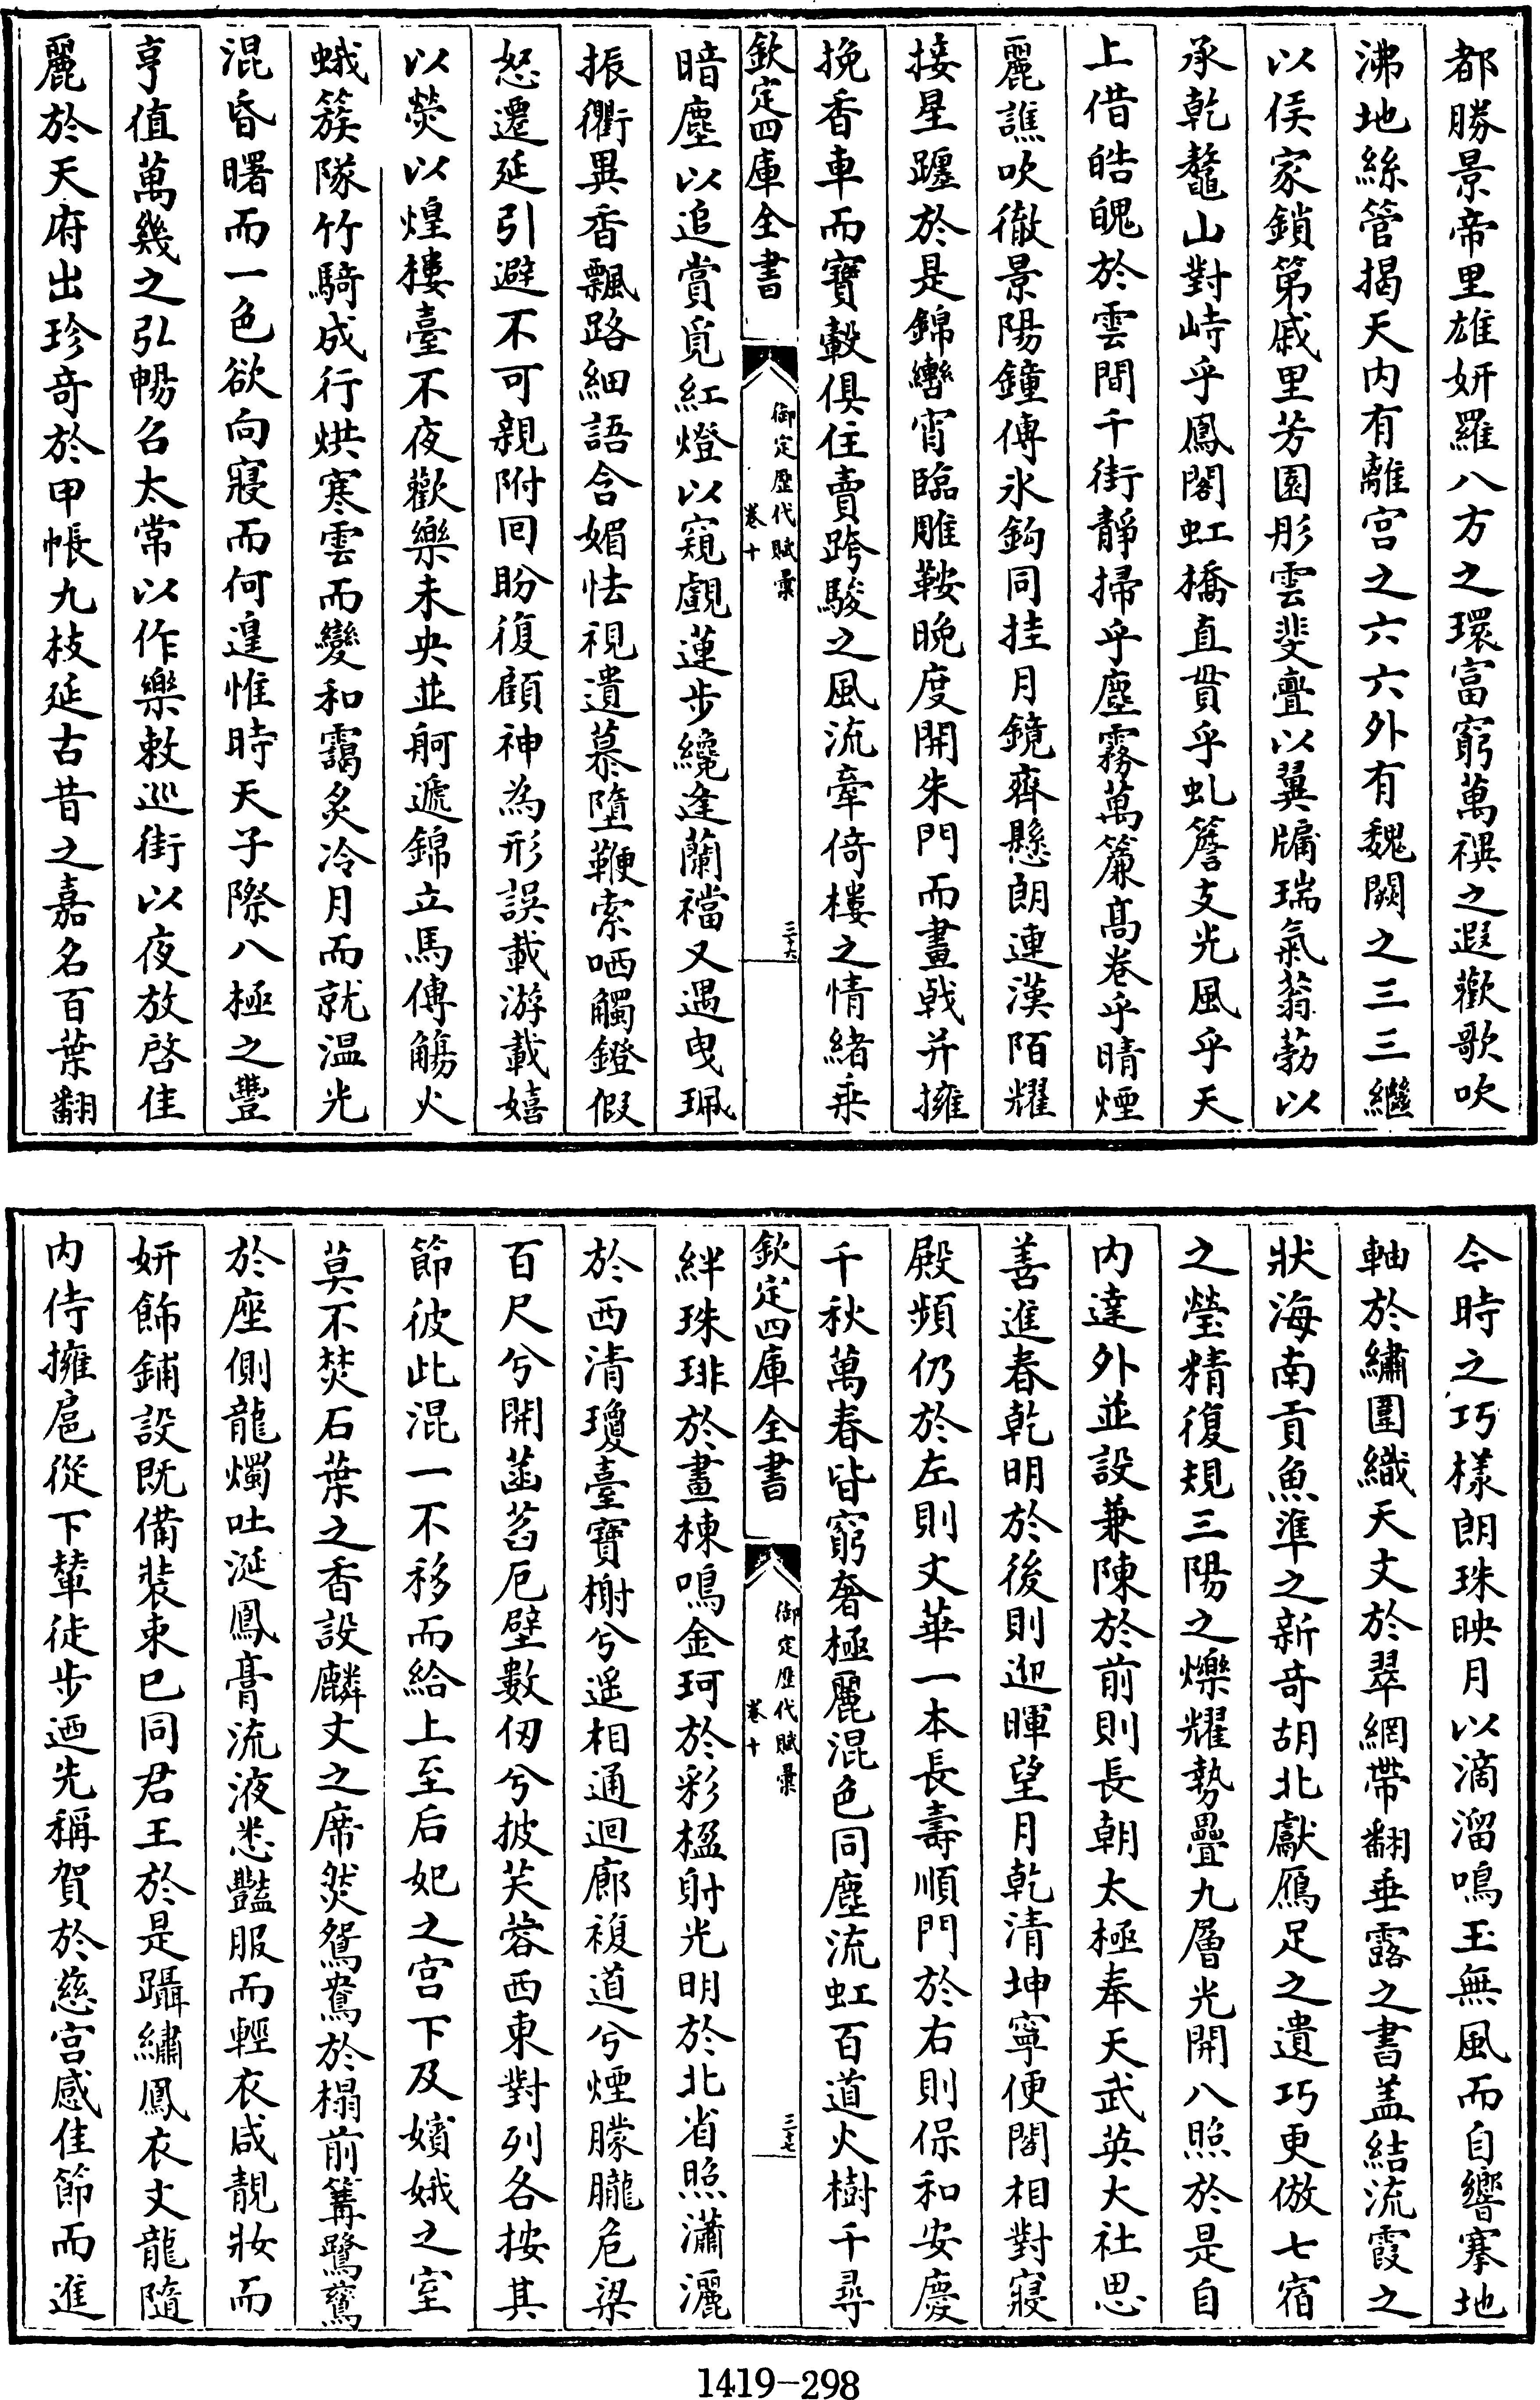 都勝景帝里雄妍羅八方之環富窮萬禩之遐歡歌吹
沸地絲管揭天内有離宫之六六外有魏闕之三三繼
以侯家鎖第戚里芳園彤雲斐亹以翼牖瑞氣蓊葧以
承乾鼇山對峙乎鳳閣虹橋直貫乎虬簷支光風乎天
上借皓魄於雲間千街靜掃乎塵霧萬簾髙卷乎晴煙
麗譙吹徹景陽鐘傳氷鈎同挂月鏡齊懸朗連漢陌耀
接星躔於是錦轡宵臨雕鞍晩度開朱門而畫戟并擁
挽香車而寶轂俱住賣跨駿之風流牽倚樓之情緒乗
欽定四庫全書
御定歴代賦彚
卷十
三十六
暗塵以追賞覓紅燈以窺覷蓮步纔逢蘭襠又遇曳珮
振衢異香飄路細語含媚怯視遺慕墮鞭索哂觸鐙假
怒遷延引避不可親附回盼復顧神為形誤載游載嬉
以熒以煌樓臺不夜歡樂未央並舸遞錦立馬傳觴火
蛾簇隊竹騎成行烘寒雲而變和靄炙冷月而就温光
混昏曙而一色欲向寢而何遑惟時天子際八極之豐
亨值萬幾之引暢召太常以作樂敕巡街以夜放啓佳
麗於天府出珍奇於甲帳九枝延古昔之嘉名百葉翻
今時之巧様朗珠映月以滴溜鳴玉無風而自響搴地
軸於繡圍織天文於翠網帶翻垂露之書盖結流霞之
狀海南貢魚準之新奇胡北獻鴈足之遺巧更倣七宿
之瑩精復規三陽之爍耀勢疊九層光開八照於是自
内達外並設兼陳於前則長朝太極奉天武英大社思
善進春乾明於後則迎暉望月乾清坤寧便閣相對寢
殿頻仍於左則文華一本長壽順門於右則保和安慶
千秋萬春皆窮奢極麗混色同塵流虹百道火樹千尋
欽定四庫全書
御定歴代賦彚
卷十
三十七
絆珠琲於畫棟鳴金珂於彩楹射光明於北省照瀟灑
於西清瓊臺寶榭兮遥相通迴廊複道兮煙朦朧危梁
百尺兮開菡萏卮壁數仞兮披芙蓉西東對列各按其
節彼此混一不移而給上至后妃之宫下及嬪娥之室
莫不焚石葉之香設麟文之席熒鴛鴦於榻前篝鷺鶿
於座側龍燭吐涎鳳膏流液悉豔服而輕衣咸靚妝而
妍飾鋪設既備裝束已同君王於是躡繡鳳衣文龍隨
内侍擁扈從下輦徒步迺先稱賀於慈宫感佳節而進
1419-298